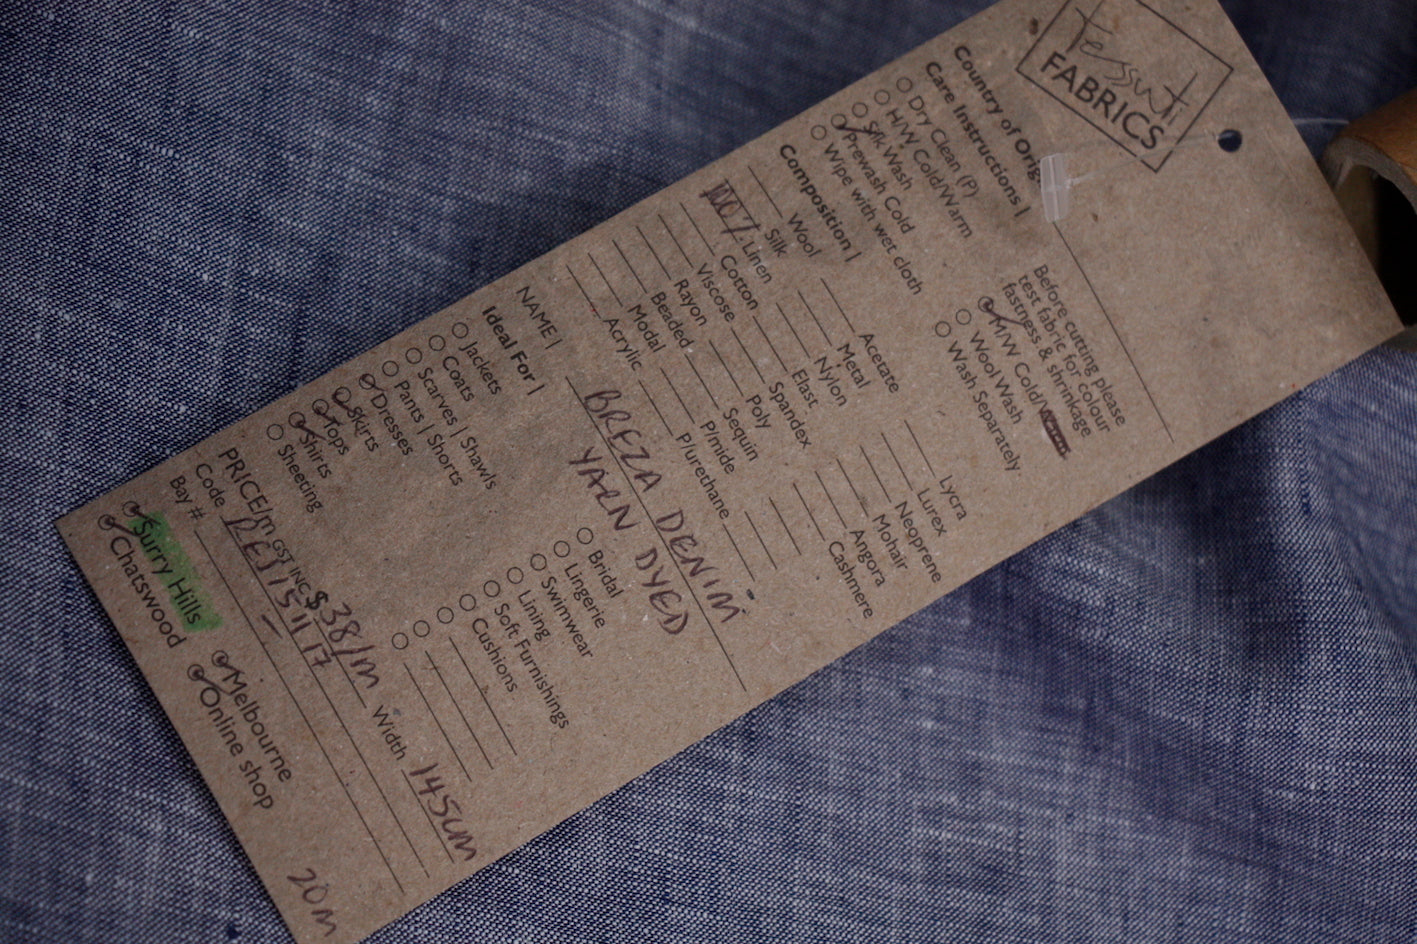 Tessuti
FABRICS
Country of Orig
Care Instructions |
Dry Clean (P)
H/W Cold/Warm
Silk Wash
Prewash Cold
Wipe with wet cloth
Before cutting please
test fabric for colour
fastness & shrinkage
M/W Cold/
Wool Wash
Wash Separately
Composition |
Wool
Silk
100% Linen
Cotton
Viscose
Rayon
Beaded
Modal
Acrylic
Acetate
Metal
Nylon
Elast
Spandex
Poly
Sequin
P/mide
P/urethane
Lycra
Lurex
Neoprene
Mohair
Angora
Cashmere
NAME |
BREZA DENIM
YARN DYED
Ideal For |
Jackets
Coats
Scarves | Shawls
Pants | Shorts
Dresses
Skirts
Tops
Shirts
Sheeting
Bridal
Lingerie
Swimwear
Lining
Soft Furnishings
Cushions
PRICE/m GST INC $38/m Width 145cm
Code
Bay #
Surry Hills
Chatswood
Melbourne
Online shop
20m